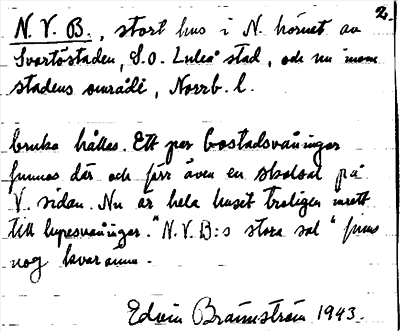 2.
N. V. B., stort hus i N. hörnet av
Svartöstaden, S.O. Luleå stad, och nu inom
stadens område, Norrb. l.
bruka hållas. Ett par bostadsvåningar
funnos där och förr även en skolsal på
V. sidan. Nu är hela huset troligen inrett
till hyresvåningar. "N. V. B:s stora sal" finns
nog kvar ännu.
Edvin Brännström 1943.